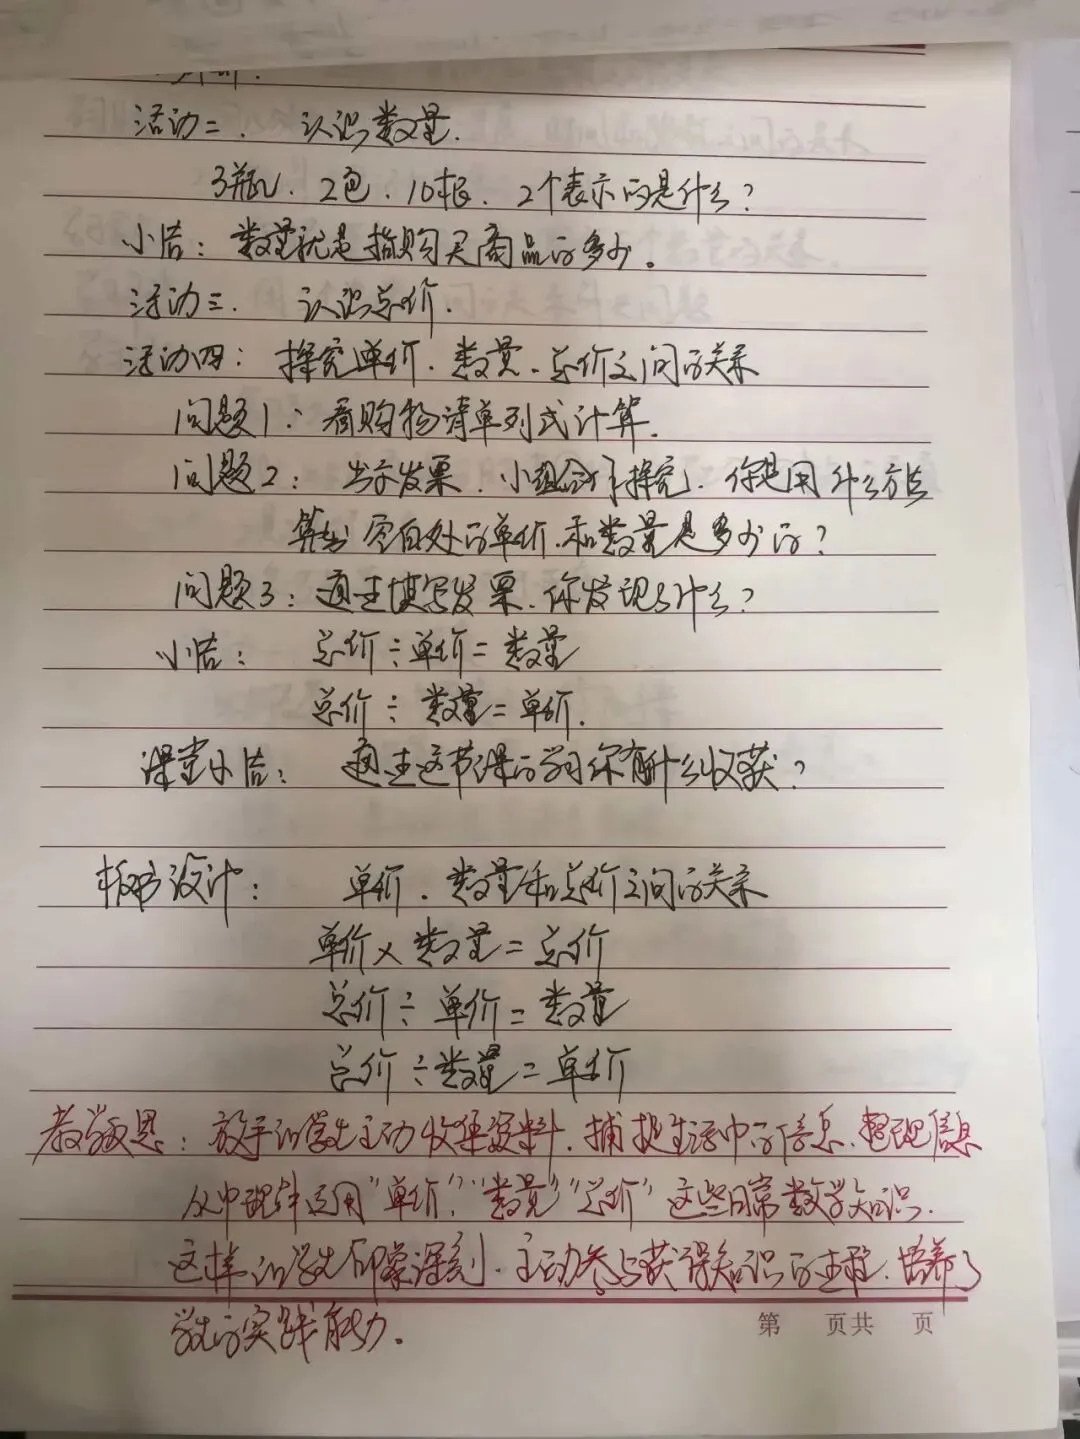 活动二. 认识数量.
3瓶、2包、10根、2个表示的是什么?
小结: 数量就是指购买商品的多少。
活动三. 认识总价.
活动四: 探究单价、数量、总价之间的关系
问题1: 看购物清单列式计算.
问题2: 出示发票、小组合作探究、你是用什么方法
算出空白处的单价和数量是多少的?
问题3: 通过填写发票、你发现了什么?
小结: 总价÷单价=数量
总价÷数量=单价.
课堂小结: 通过这节课的学习你有什么收获?
板书设计: 单价、数量和总价之间的关系
单价×数量=总价
总价÷单价=数量
总价÷数量=单价
教学反思: 放手让学生主动收集资料、捕捉生活中的信息、整理信息
从中理解运用“单价”“数量”“总价”这些日常数学知识.
这样让学生印象深刻、主动参与获得知识的过程、培养了
学生的实践能力。
第 页共 页